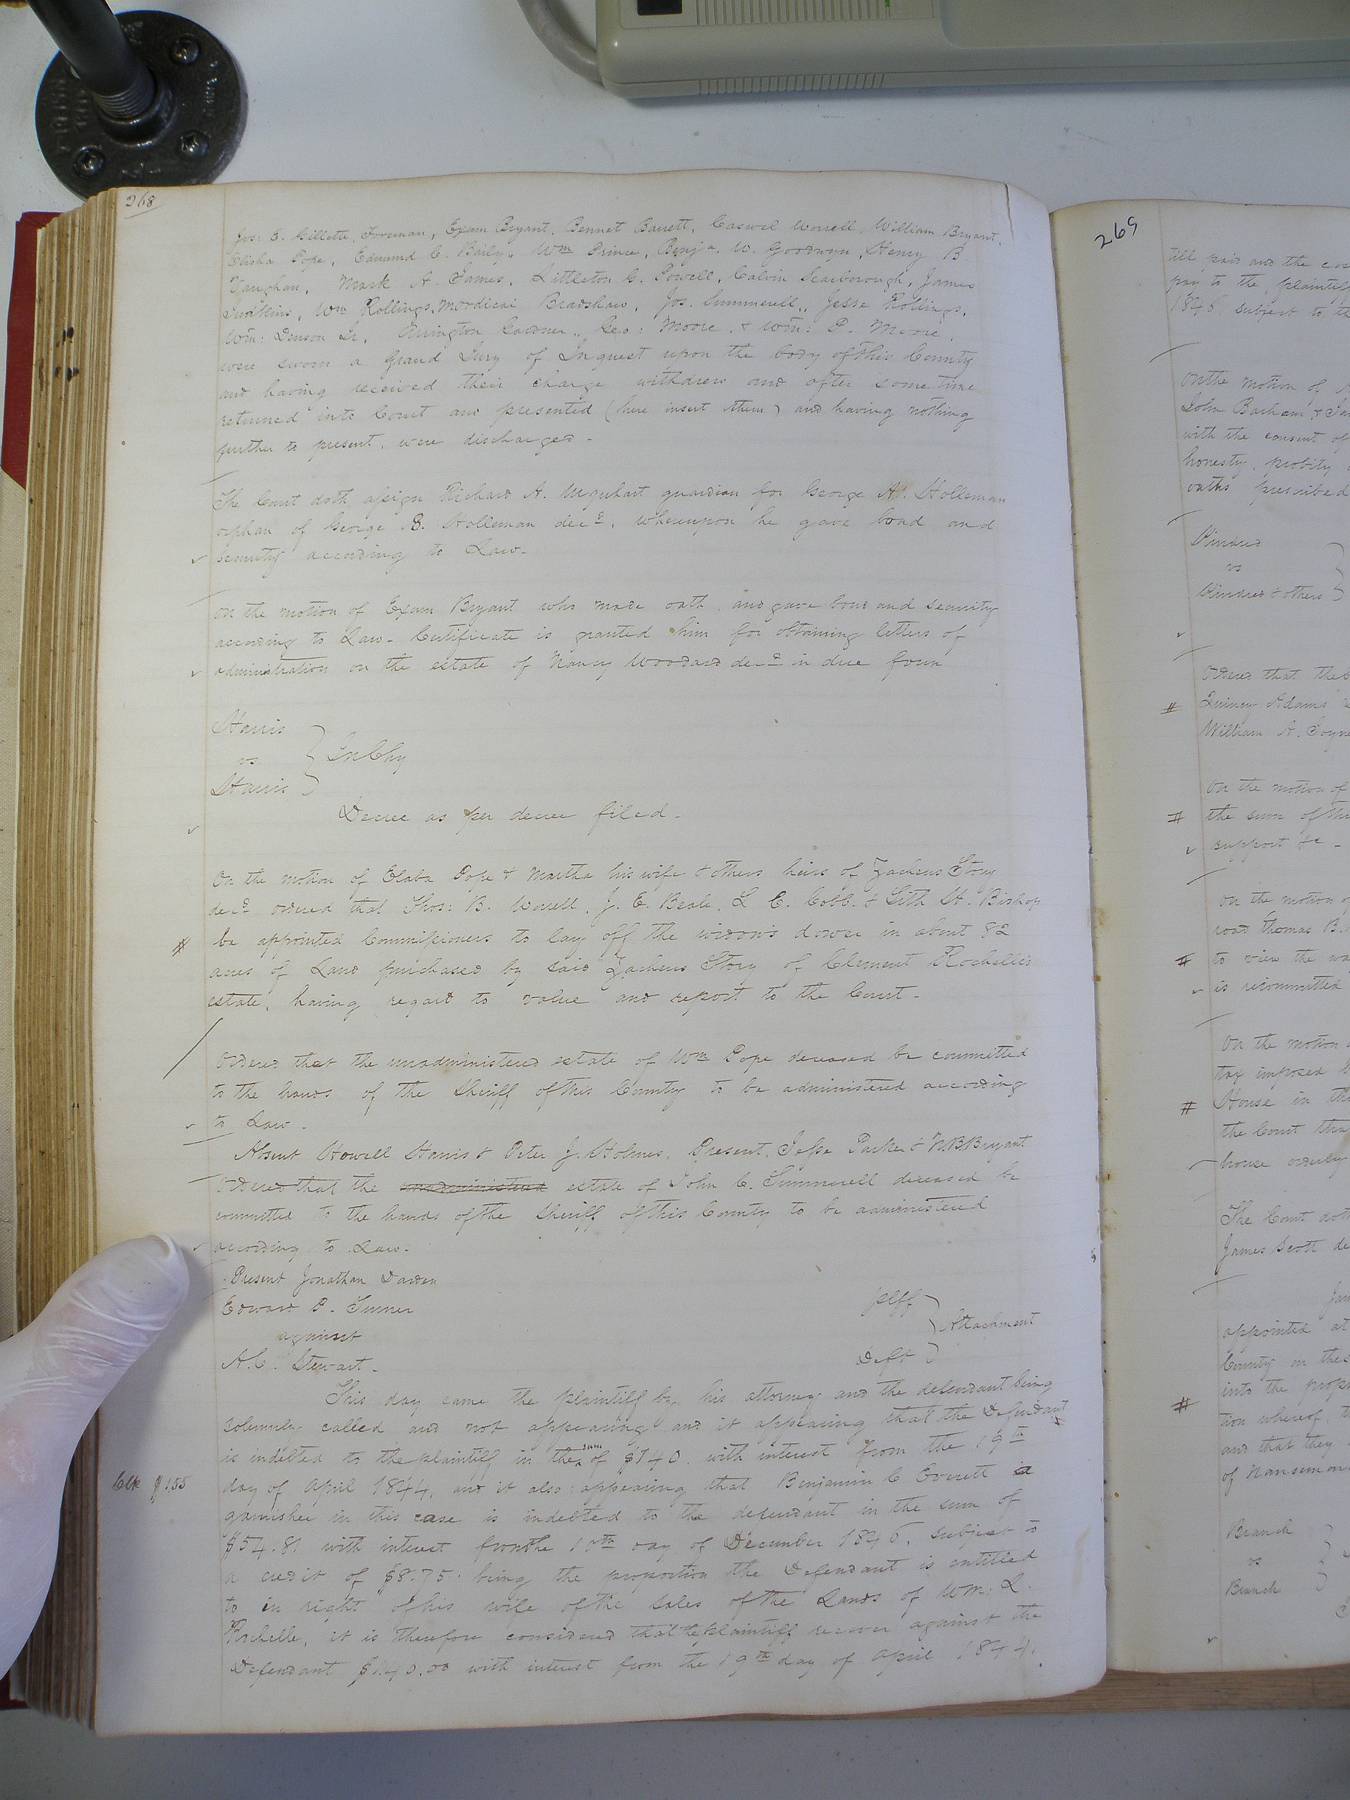 268
Jos: E. Gillette, Foreman, Exam Bryant, Bennet Barrett, Caswell Worrell, William Bryant,
Elisha Pope, Edmund C. Baily, Wm Prince, Benja. W. Goodwyn, Henry B
Vaughan, Mark A. James, Littleton G. Powell, Calvin Scarborough, James
Judkins, Wm Rollings, Mordicai Bradshaw, Jos. Summerell, Jesse Rollings,
Wm: Denson Sr, Arrington Gardner, Geo: Moore, & Wm: P. Moore,
were sworn a Grand Jury of Inquest upon the body of this County
and having received their charge withdrew and after some time
returned into Court and presented (here insert them) and having nothing
further to present, were discharged.
The Court doth assign Richard A. Urquhart guardian for George A. Holleman
orphan of George S. Holleman decd, whereupon he gave bond and
security according to Law.
On the motion of Exam Bryant who made oath and gave bond and security
according to Law. Certificate is granted him for obtaining letters of
administration on the estate of Nancy Woodard decd in due form
Harris
vs
Harris
In Chy
Decree as per decree filed.
On the motion of Pope & Martha his wife & others heirs of Zacheus Story
decd ordered that Thos: B. Worrell, J. E. Beale, L E. Cobb & Lith H. Bishop
# be appointed Commissioners to lay off the widow's dower in about 82
acres of Land purchased by said Zacheus Story of Clement Rochelle's
estate, having regard to value and report to the Court.
Ordered that the unadministered estate of Wm Pope deceased be committed
to the hands of the Sheriff of this County to be administered according
to Law.
Absent Howell Harris & Peter J. Holmes, Present, Jesse Parker & N.B. Bryant
Ordered that the unadministered estate of John C. Summerell deceased be
committed to the hands of the Sheriff of this County to be administered
according to Law.
Present Jonathan Darden
Edward P. Turner
Plff
against
Attachment
A.C. Stewart.
Deft
This day came the plaintiff by his attorney and the defendant being
solemnly called and not appearing and it appearing that the Defendant
is indebted to the plaintiff in the sum of $140 with interest from the 19th
Clk $1.55
day of April 1844, and it also appearing that Benjamin C Everett a
garnishee in this case is indebted to the defendant in the sum of
$54.81 with interest from the 10th day of December 1846, subject to
a credit of $8.75 being the proportion the Defendant is entitled
to in right of his wife of the sales of the Lands of Wm. L.
Rochelle, it is therefore considered that the plaintiff recover against the
Defendant $140.00 with interest from the 19th day of April 1844.
269
till paid and the
pay to the plaintiff
1846 subject to the
On the motion of
John Barham &
with the consent of
honesty, probity
oaths prescribed
Kindred
vs
Kindred & others
Ordered that the
# Quincy Adams
William A.
On the motion of
# the sum of
support &c.
On the motion of
road Thomas B.
# to view the way
is recommitted
On the motion
tax imposed
# House in the
the Court
house orderly
The Court doth
James Scott
appointed at
County on the
# into the
tion whereof
and that they
of Nansemond
Branch
vs
Branch